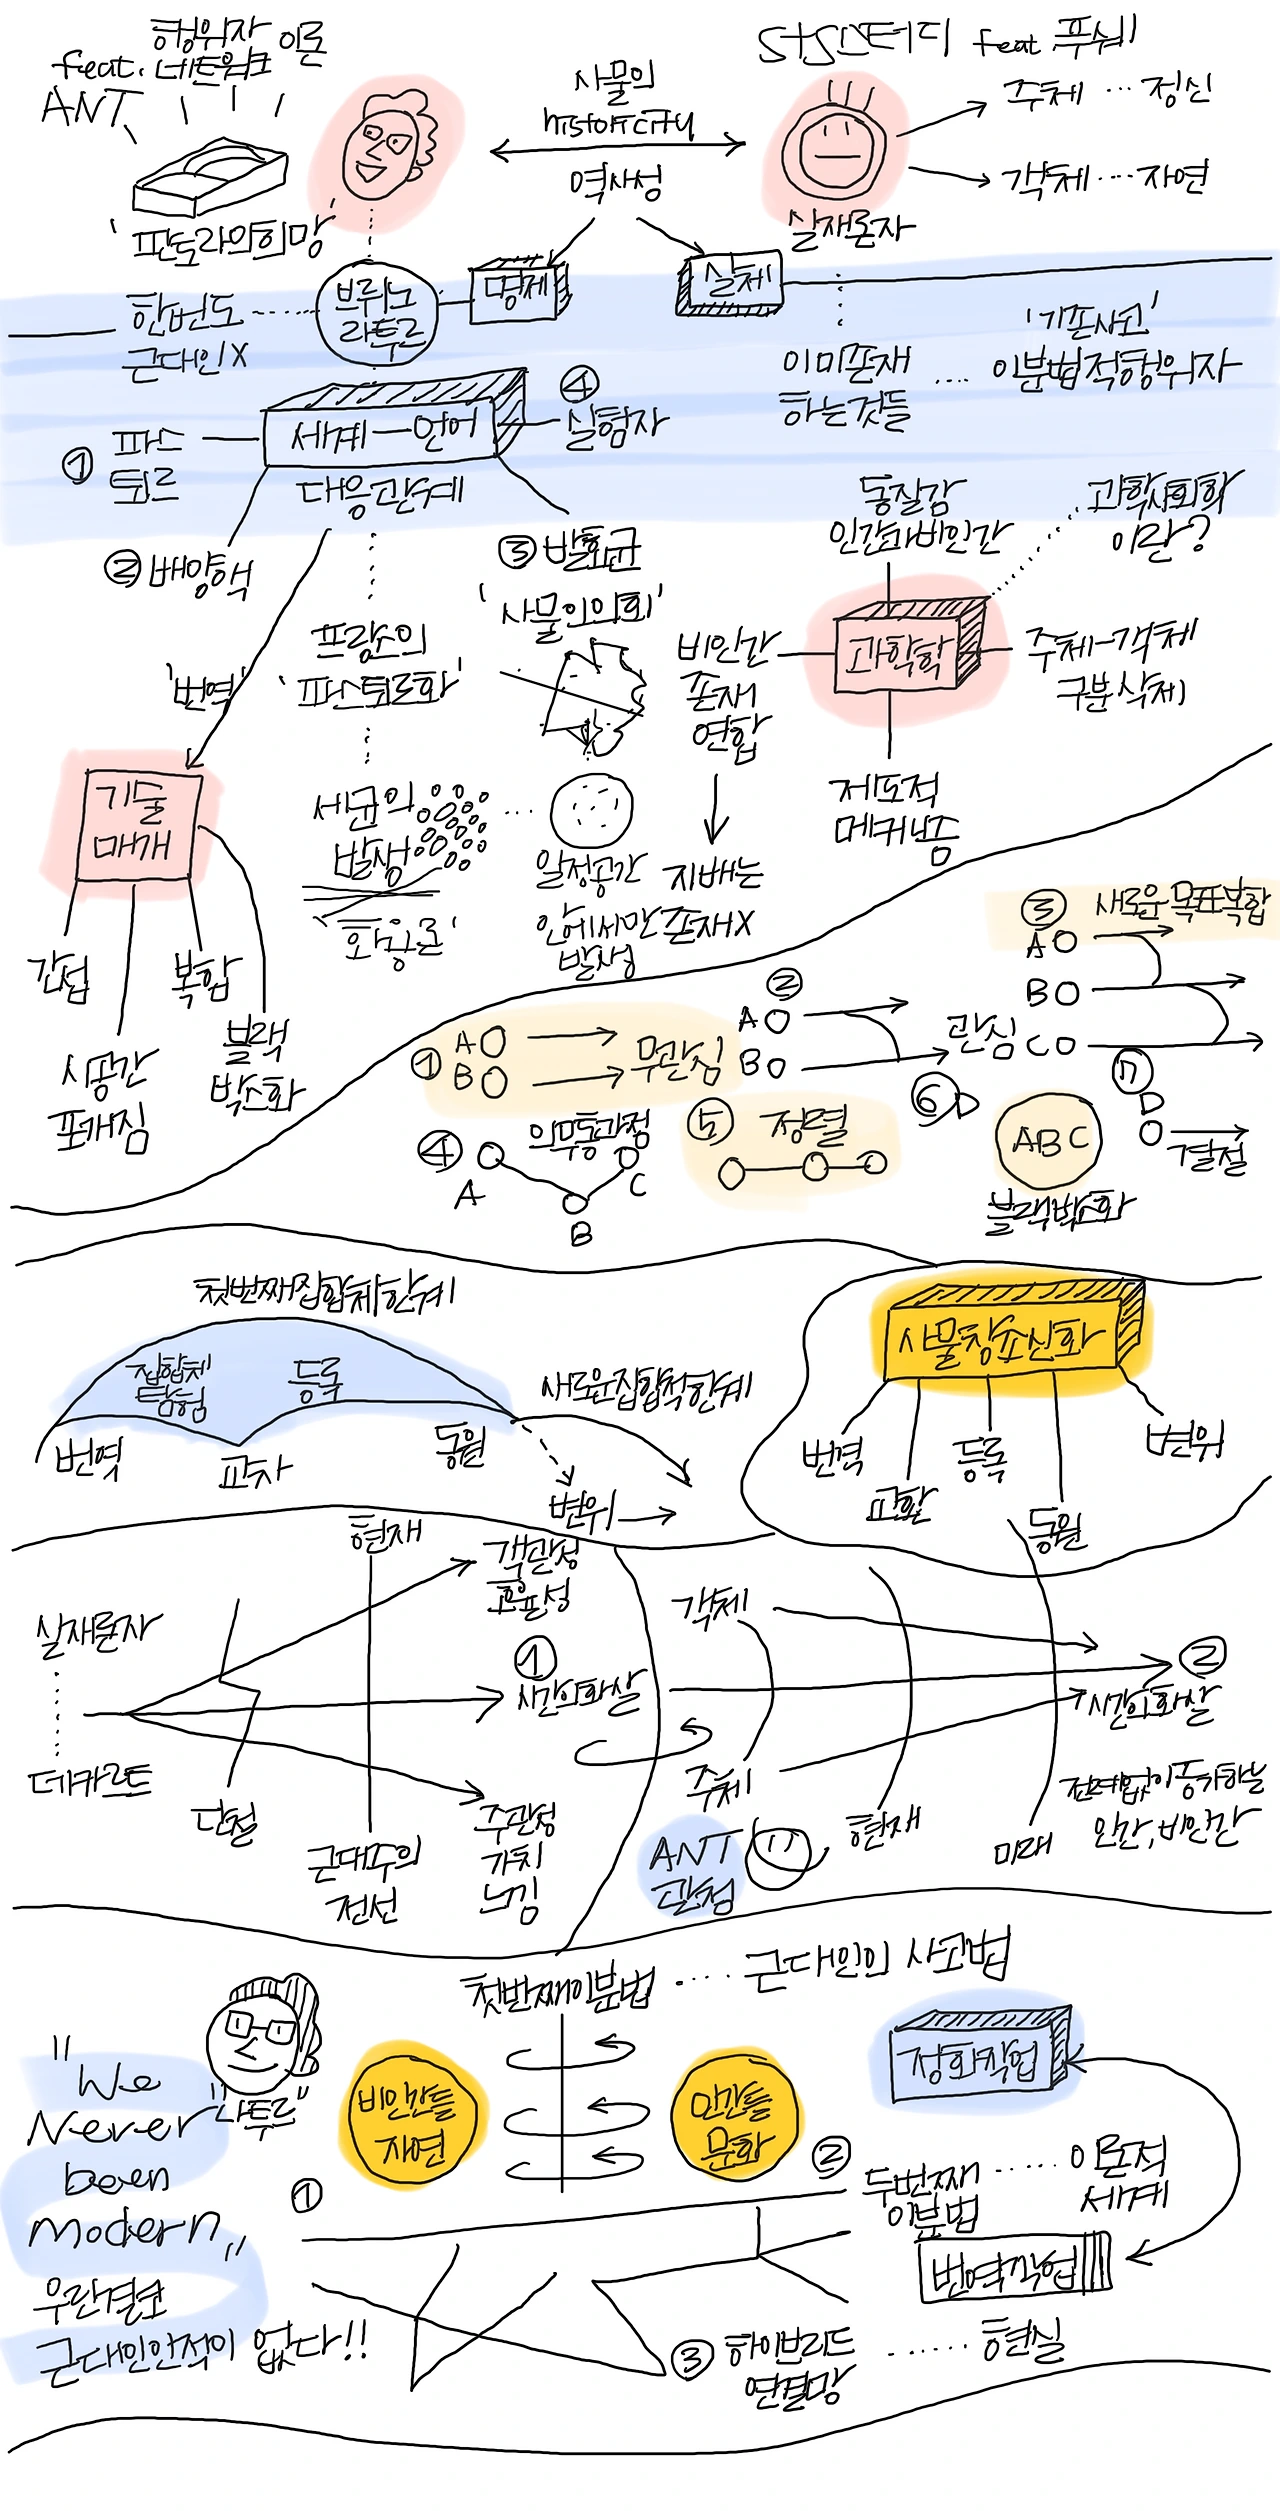 행위자 이론
feat. 네트워크
ANT
'판도라의희망'
사물의
historicity
역사성
STS스터디 feat. 푸쉬
주체 … 정신
객체 … 자연
실재론자
한번도
근대인X
브뤼노
라투르
명제
실체
이미존재
하는것들
'기존사고'
이분법적행위자
① 파스
퇴르
세계—언어
④
실험자
대응관계
② 배양액
③ 발효균
'번역'
프랑스의
'파스퇴르화'
'사물의의회'
동질감
인간과비인간
과학사회학
이란?
비인간
존재
연합
과학학
주체-객체
구분삭제
제도적
메커니즘
기술
매개
간섭
복합
시공간
포개짐
블랙
박스화
세균의
발생
일정공간
안에서만
발생
지배는
존재X
① A
B
무관심
②
A
B
관심
③ 새로운목표복합
A
B
C
④ 의무통과점
A
B
C
⑤ 정렬
⑥ D
ABC
블랙박스화
⑦
D
결절
첫번째집합체한계
집합체
탐험
등록
번역
교차
동원
새로운집합적한계
변위
사물창조신화
번역
교환
등록
동원
변위
현재
객관성
실재론자
데카르트
단절
근대주의
전선
①
시간의화살
주관성
가치
느낌
객체
주체
ANT
관점
현재
미래
②
시간의화살
전례없이증가하는
인간,비인간
첫번째이분법 …… 근대인의 사고법
"We
Never
been
modern„
"라투르"
우린결코
근대인인적이 없다!!
비인간들
자연
인간들
문화
정화작업
①
②
두번째
이분법
…… 이론적
세계
번역작업
③ 하이브리드
연결망
…… 현실